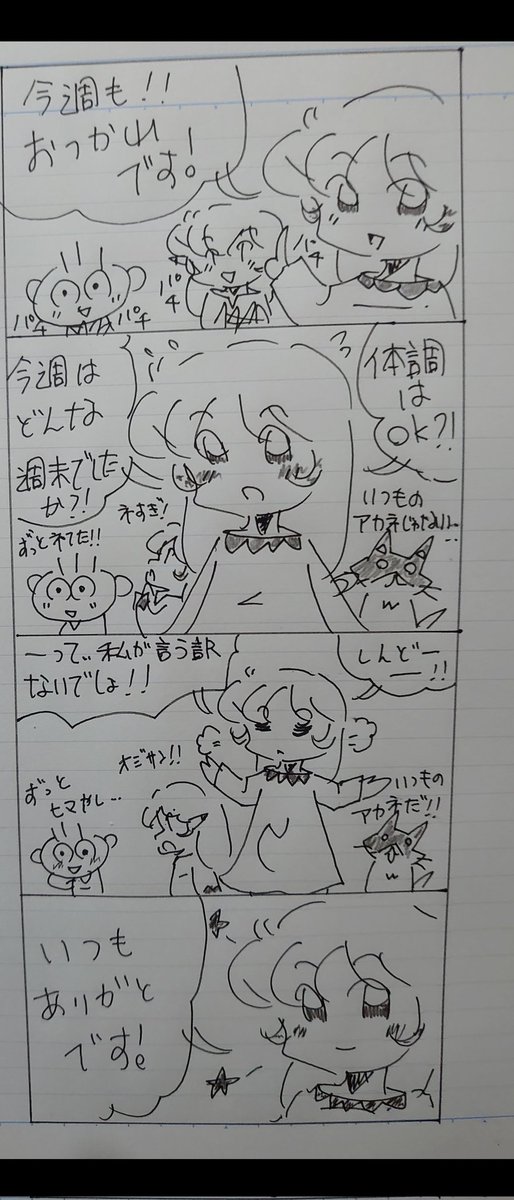 今週も!!
おつかれ
です!
パチ
パチ
パチ
パチ
体調
は
OK?!
今週は
どんな
週末でした
か?!
いつもの
アカネじゃない…
ネすぎ!
ずっとネてた!!
しんどー
ー!!
ーって、私が言う訳
ないでしょ!!
オジサン!!
いつもの
アカネだ!!
ずっと
ヒマかし…
いつも
ありがと
です!